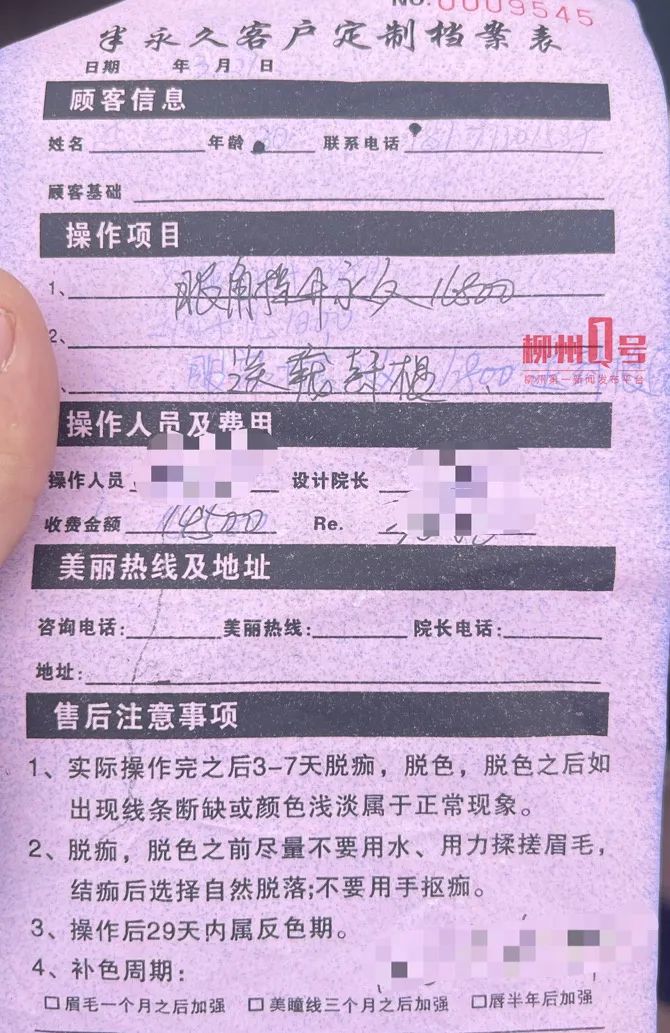 NO.0009545
半永久客户定制档案表
日期 年 月 日
顾客信息
姓名 年龄 联系电话
顾客基础
操作项目
1、眼角提升永久16800
2、
淡 提
柳州1号
柳州第一新闻发布平台
操作人员及费用
操作人员 设计院长
收费金额 14500 Re.
美丽热线及地址
咨询电话: 美丽热线: 院长电话:
地址:
售后注意事项
1、实际操作完之后3-7天脱痂，脱色，脱色之后如
出现线条断缺或颜色浅淡属于正常现象。
2、脱痂，脱色之前尽量不要用水、用力揉搓眉毛，
结痂后选择自然脱落;不要用手抠痂。
3、操作后29天内属反色期。
4、补色周期:
□眉毛一个月之后加强 □美瞳线三个月之后加强 □唇半年后加强